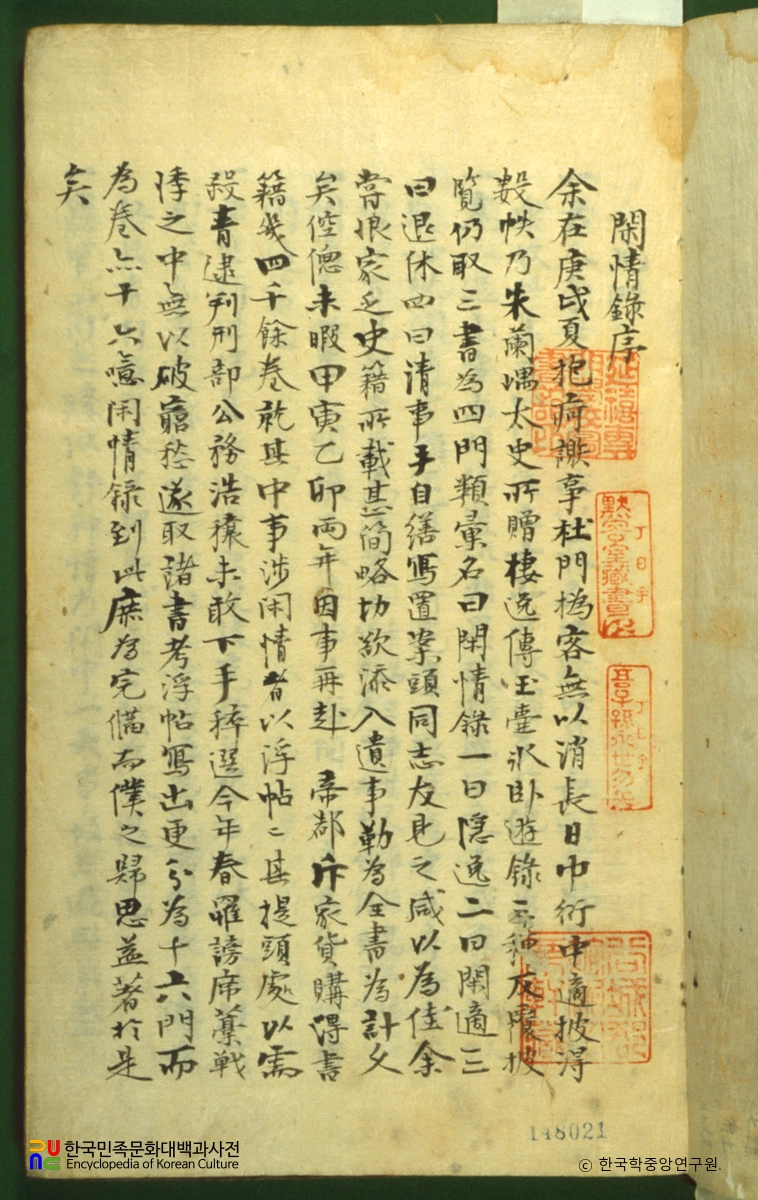 閑情錄序
余在庚戌夏抱痾謝事杜門摽客無以消長日巾衍中適披得
數帙乃朱蘭嵎太史所贈棲逸傳玉壺氷臥遊錄三種反覆披
覽仍取三書為四門類彙名曰閑情錄一曰隱逸二曰閑適三
曰退休四曰清事手自繕寫置案頭同志友見之咸以為佳余
嘗恨家乏史籍所載甚簡略切欲添入遺事勒為全書為計久
矣倥傯未暇甲寅乙卯兩年因事再赴 帝都斥家貨購得書
籍幾四千餘卷就其中事涉閑情者以浮帖〻其提頭處以需
殺青逮判刑部公務浩穰未敢下手稡選今年春罹謗席藁戰
悸之中無以破羇愁遂取諸書考浮帖寫出更分為十六門而
為卷亦十六噫閑情錄到此庶為完備而僕之歸思益著於是
矣
148021
한국민족문화대백과사전
Encyclopedia of Korean Culture
© 한국학중앙연구원.